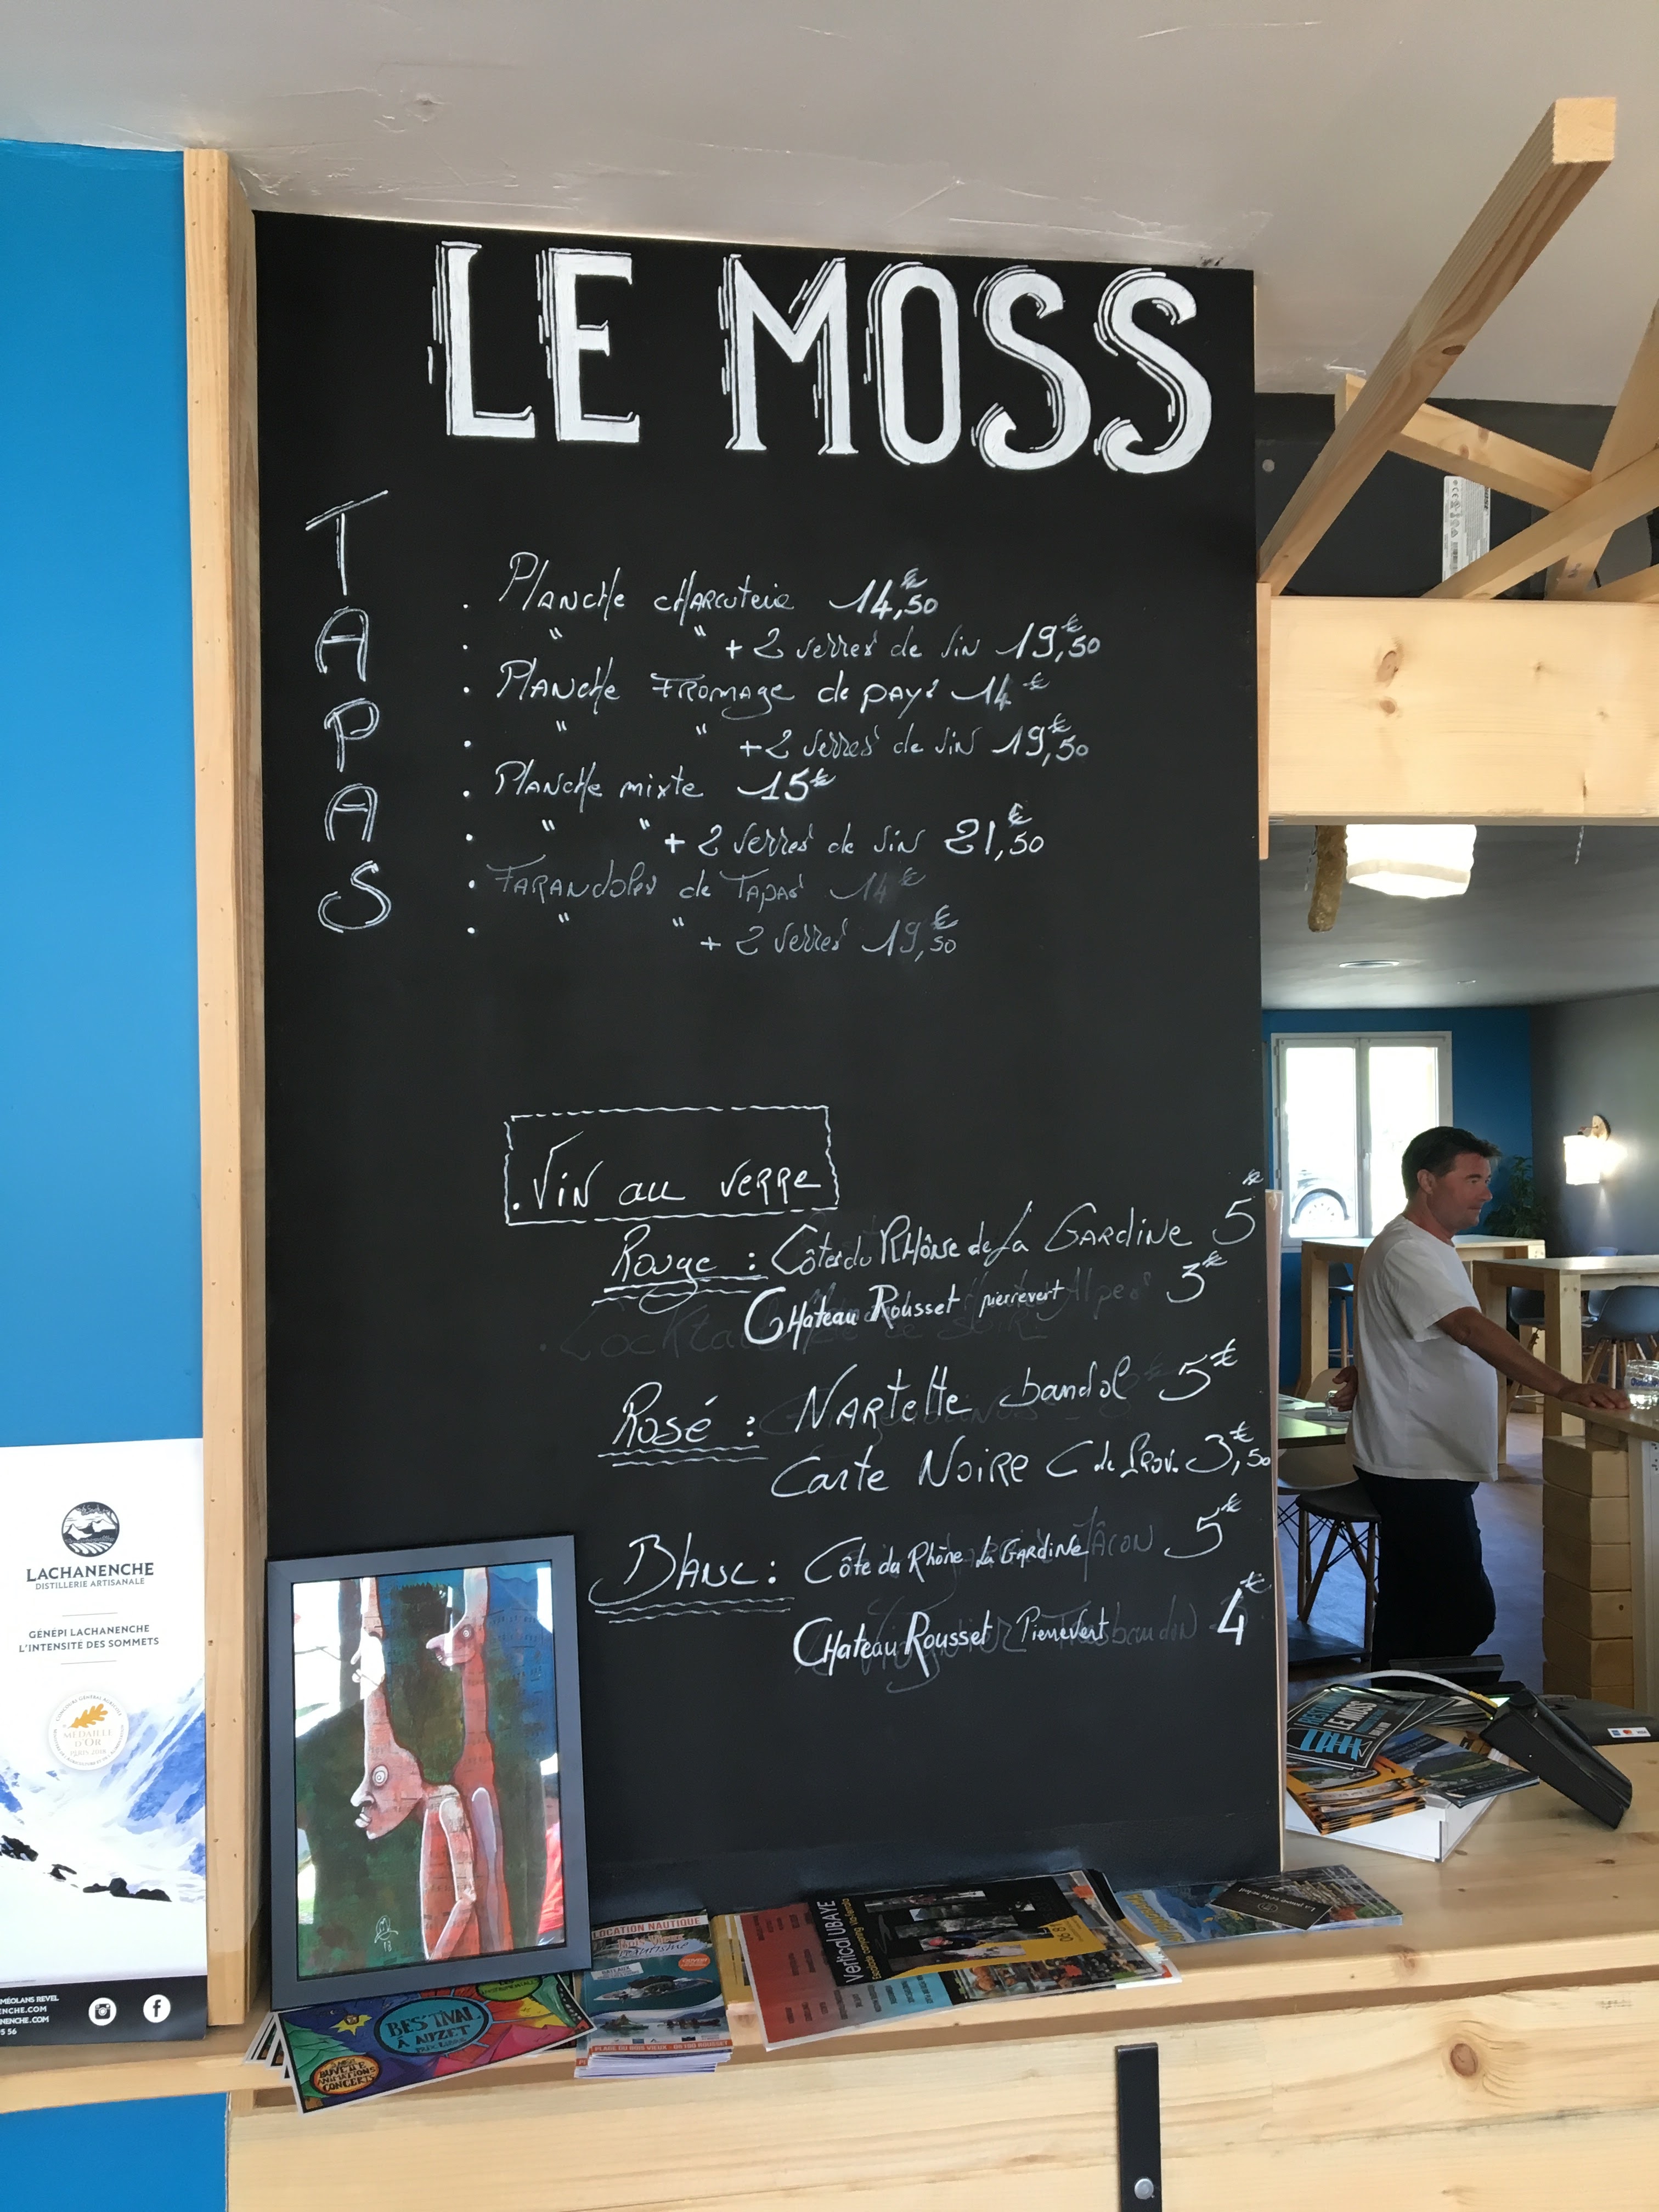 LE MOSS
TAPAS
. Planche charcuterie 14,€50
. " " + 2 verres de vin 19,€50
. Planche Fromage de pays 14€
. " " + 2 verres de vin 19,€50
. Planche mixte 15€
. " " + 2 verres de vin 21,€50
. Farandoles de Tapas 14€
. " " + 2 verres 19,€50
. Vin au verre
Rouge : Côtes du Rhône de La Gardine 5€
Chateau Rousset pierrevert 3€
Rosé : Nartette bandol 5€
Carte Noire C de Prov. 3,€50
Blanc : Côte du Rhône La Gardine 5€
Chateau Rousset Pierrevert 4€
LACHANENCHE
DISTILLERIE ARTISANALE
GÉNÉPI LACHANENCHE
L'INTENSITÉ DES SOMMETS
MÉDAILLE
D'OR
PARIS 2018
MÉOLANS REVEL
NCHE.COM
NENCHE.COM
5 56
BESTIVAL
À AUZET
BUVETTE
ANIMATIONS
CONCERTS
LOCATION NAUTIQUE
Bois Vieux
PLAGE DU BOIS VIEUX - 05190 ROUSSET
Vertical UBAYE
LE MOSS